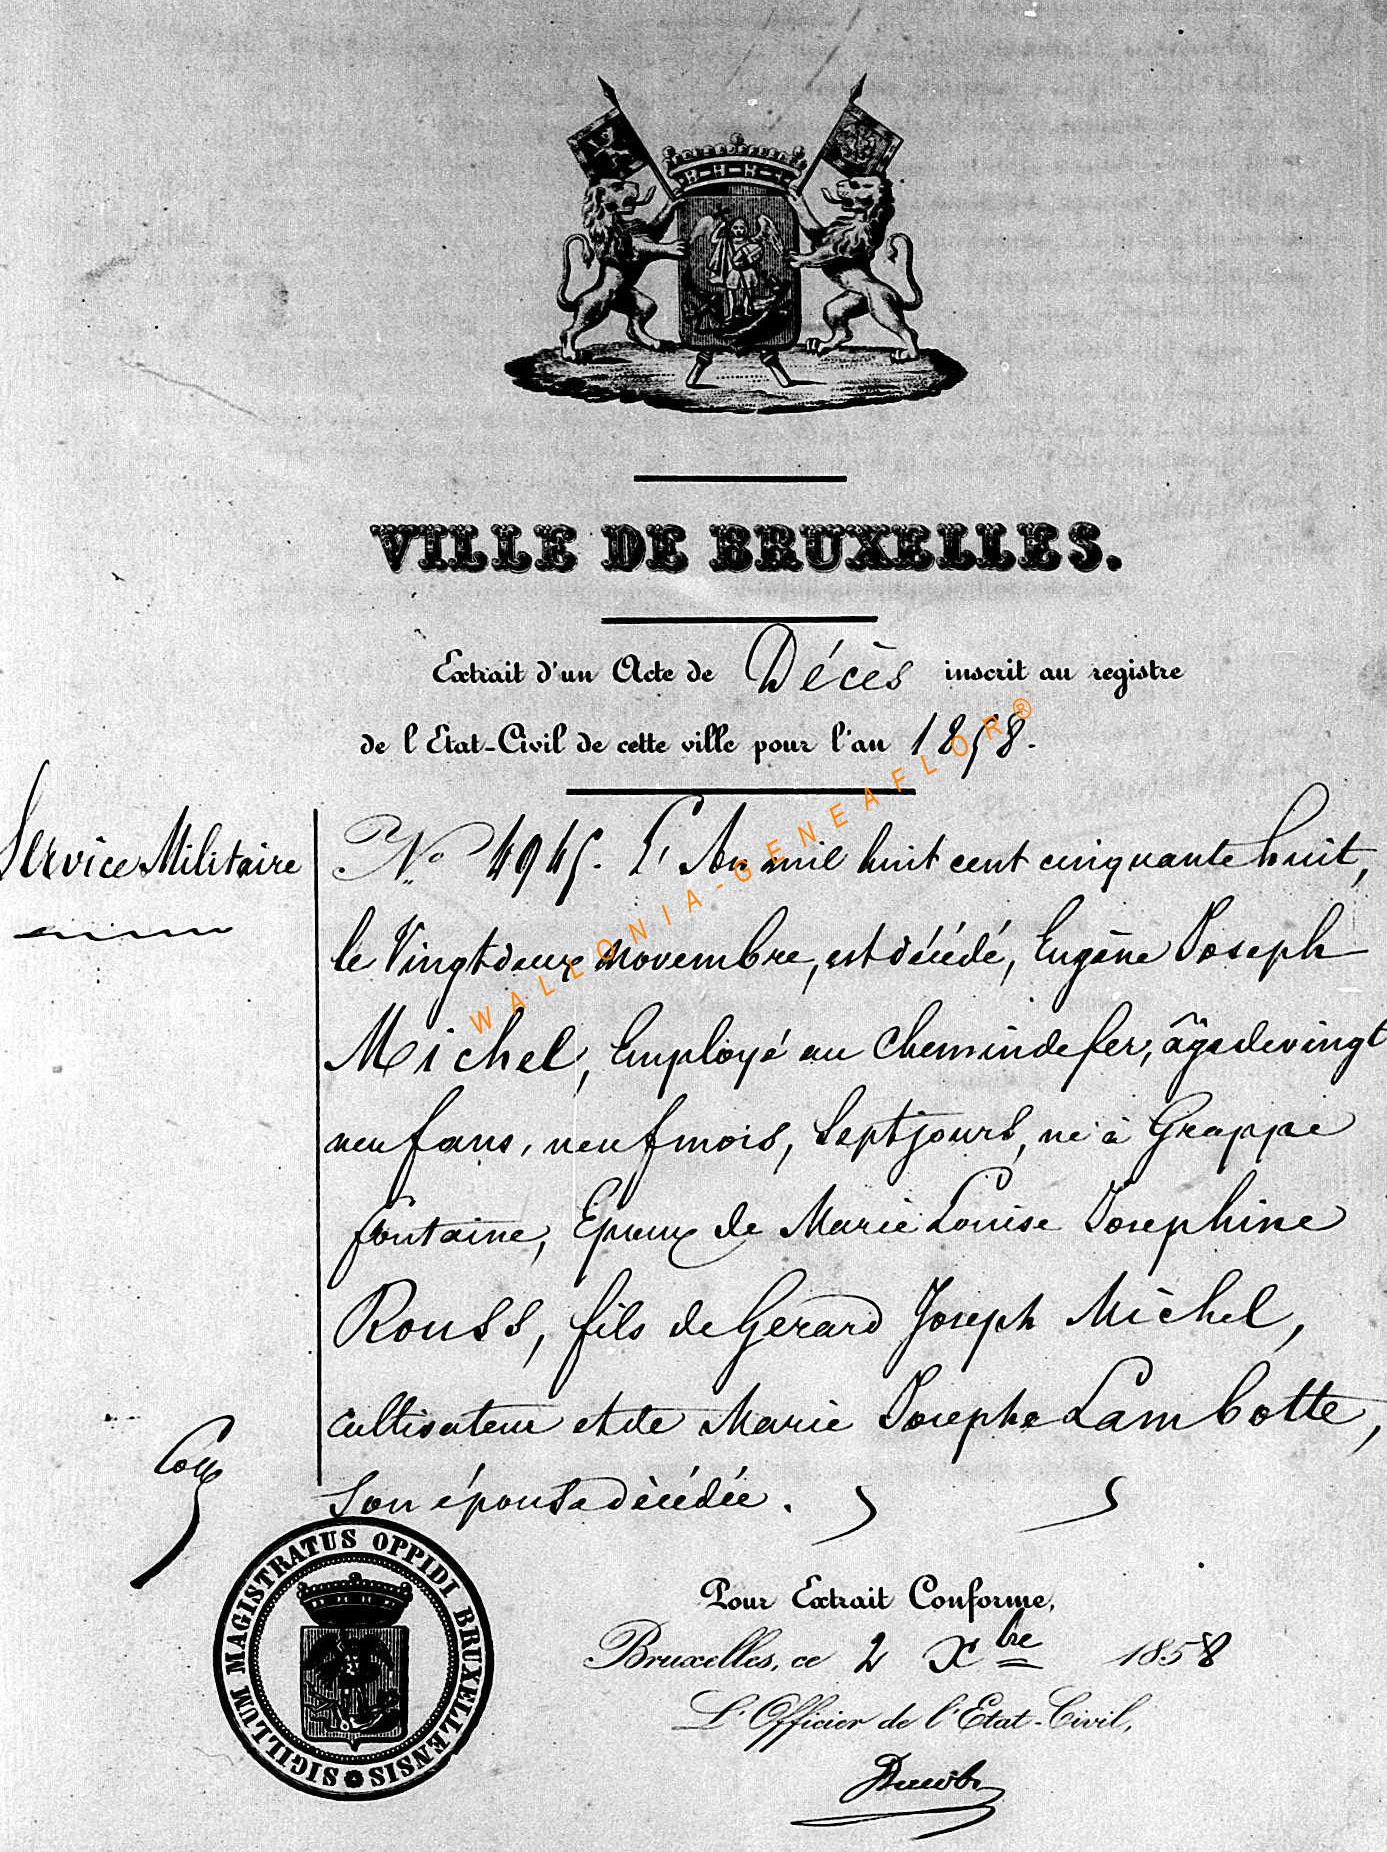 VILLE DE BRUXELLES.
Extrait d'un Acte de Décès inscrit au registre
de l'Etat-Civil de cette ville pour l'an 1858.
Service Militaire
N° 4945. L'An mil huit cent cinquante huit,
le Vingt deux novembre, est décédé, Eugène Joseph
Michel, Employé au Chemin de fer, âgé de vingt
neuf ans, neuf mois, Sept jours, né à Grappe
fontaine, Epoux de Marie Louise Josephine
Rouss, fils de Gerard Joseph Michel,
cultivateur et de Marie Josephe Lambotte,
Son épouse décédée.
Pour Extrait Conforme,
Bruxelles, ce 2 Xbre 1858
L'Officier de l'Etat-Civil,
SIGILLUM MAGISTRATUS OPPIDI BRUXELLENSIS
WALLONIA-GENEAFLOR®